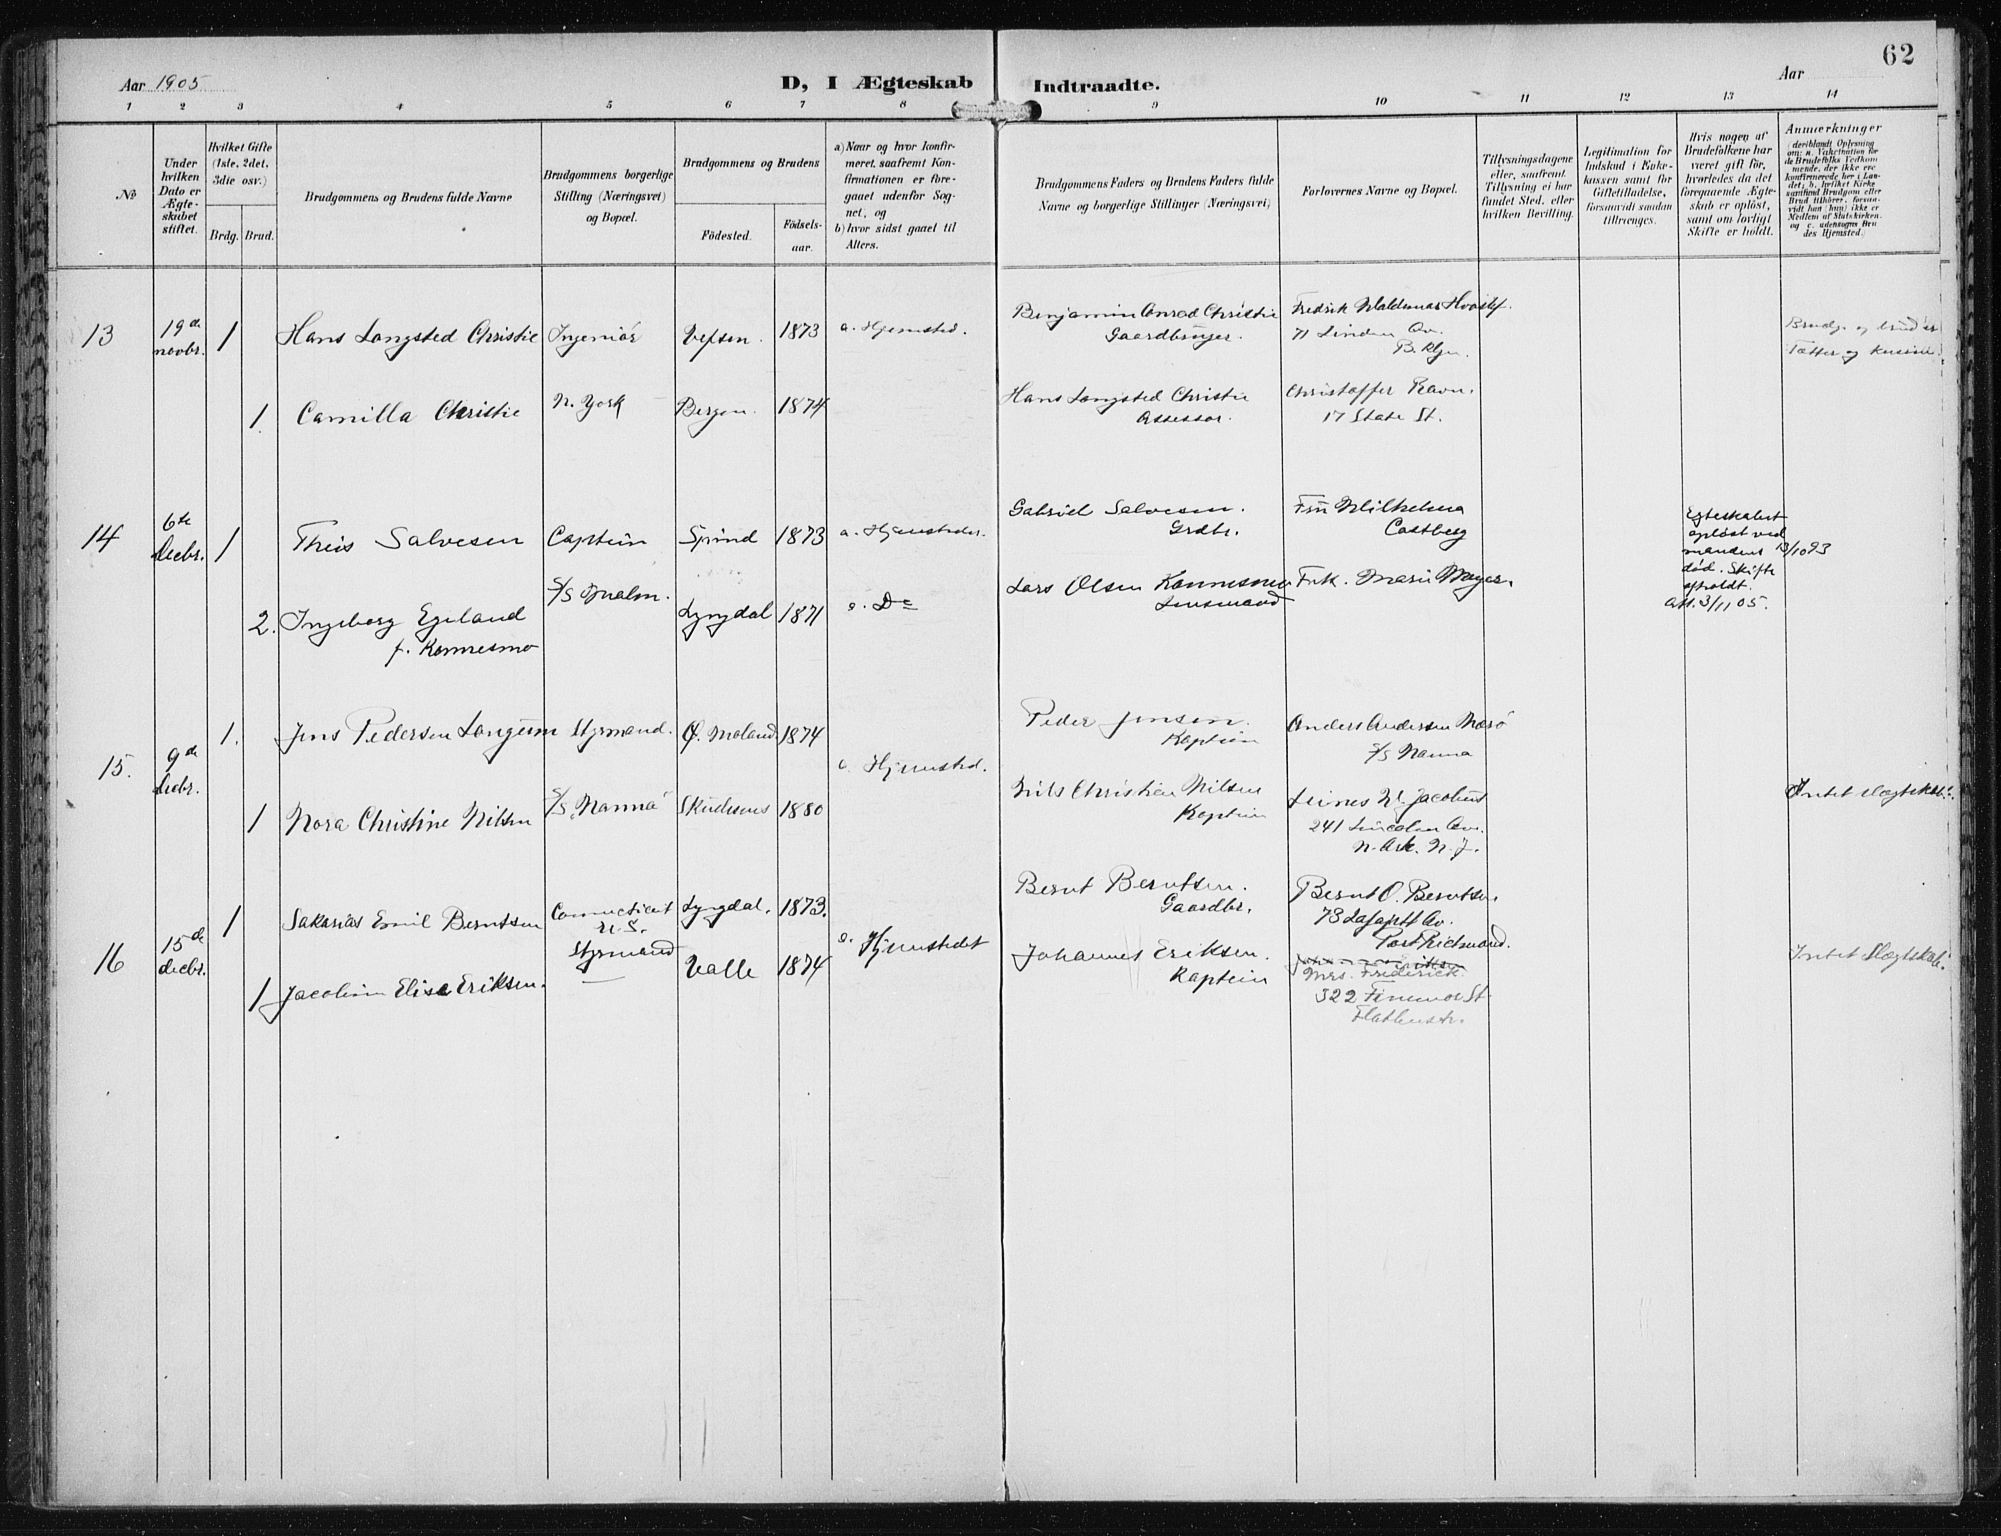 62
Aar 1905
D, I Ægteskab Indtraadte.
Aar
1 2 3 4 5 6 7 8 9 10 11 12 13 14
No
Under hvilken Dato er Ægteskabet stiftet.
Hvilket Gifte (1ste, 2det, 3die osv.)
Brdg. Brud.
Brudgommens og Brudens fulde Navne
Brudgommens borgerlige Stilling (Næringsvei) og Bopæl.
Brudgommens og Brudens
Födested.
Födselsaar.
a) Naar og hvor konfirmeret, saafremt Konfirmationen er foregaaet udenfor Sognet, og
b) hvor sidst gaaet til Alters.
Brudgommens Faders og Brudens Faders fulde Navne og borgerlige Stillinger (Næringsvei)
Forlovernes Navne og Bopæl.
Tillysningsdagene eller, saafremt Tillysning ei har fundet Sted, efter hvilken Bevilling.
Legitimation for Indskud i Enkekassen samt for Giftetilladelse, forsaavidt saadan tiltrænges.
Hvis nogen af Brudefolkene har været gift för, hvorledes da det foregaaende Ægteskab er oplöst, samt om lovligt Skifte er holdt.
Anmærkninger
(deriblandt Oplysning om: a. Vakcination for de Brudefolks Vedkommende, der ikke ere konfirmerede her i Landet; b. hvilket Kirkesamfund Brudgom eller Brud tilhörer, forsaavidt han (hun) ikke er Medlem af Statskirken, og c. udensogns Brudes Hjemsted.)
13 19de novbr. 1 Hans Langsted Christie Ingeniör Vefsen. 1873 a. Hjemsted. Benjamin Conrad Christie Gaardbruger. Fredrik Waldemar 71 Linden Av. B.klyn. Brudg. og brud er Fætter og kusine.
1. Camilla Christie N. York Bergen. 1874 Hans Langsted Christie Assessor. Christoffer Ravn. 17 State St.
14 6te decbr. 1 Theis Salvesen Captein Spind 1873 a. Hjemstedet. Gabriel Salvesen. Grdbr. Fru Wilhelma Castberg Egteskabet oplöst ved mandens 13/10 93 död. Skifte afholdt. Att. 3/11 05.
2. Ingeborg Egeland f. Konnesmo S/S Malm. Lyngdal 1871 a. Do Lars Olsen Konnesmo Lensmand Frk. Marie Meyer.
15. 9de decbr. 1. Jens Pedersen Langum Styrmand. Ö. Moland 1874 a. Hjemsted. Peder Jensen. Kaptein Anders Andersen Narö S/S Nanna
1 Nora Christine Nilsen S/S Nanna Skudesnes 1880 Nils Christian Nilsen Kaptein Jacobus 241 Lincoln Av. N. Ark. N. J. Intet slægtskab.
16 15de decbr. 1 Sakarias Emil Berntsen Connecticut U.S. Styrmand Lyngdal. 1873. a. Hjemstedet Bernt Berntsen. Gaardbr. Bernt O. Berntsen. 78 Lafayett Av. Port Richmond.
1 Jacobine Elise Eriksen. — Valle 1874 Johannes Eriksen. Kaptein Mrs. Frederick 322 St. Intet Slægtskab.